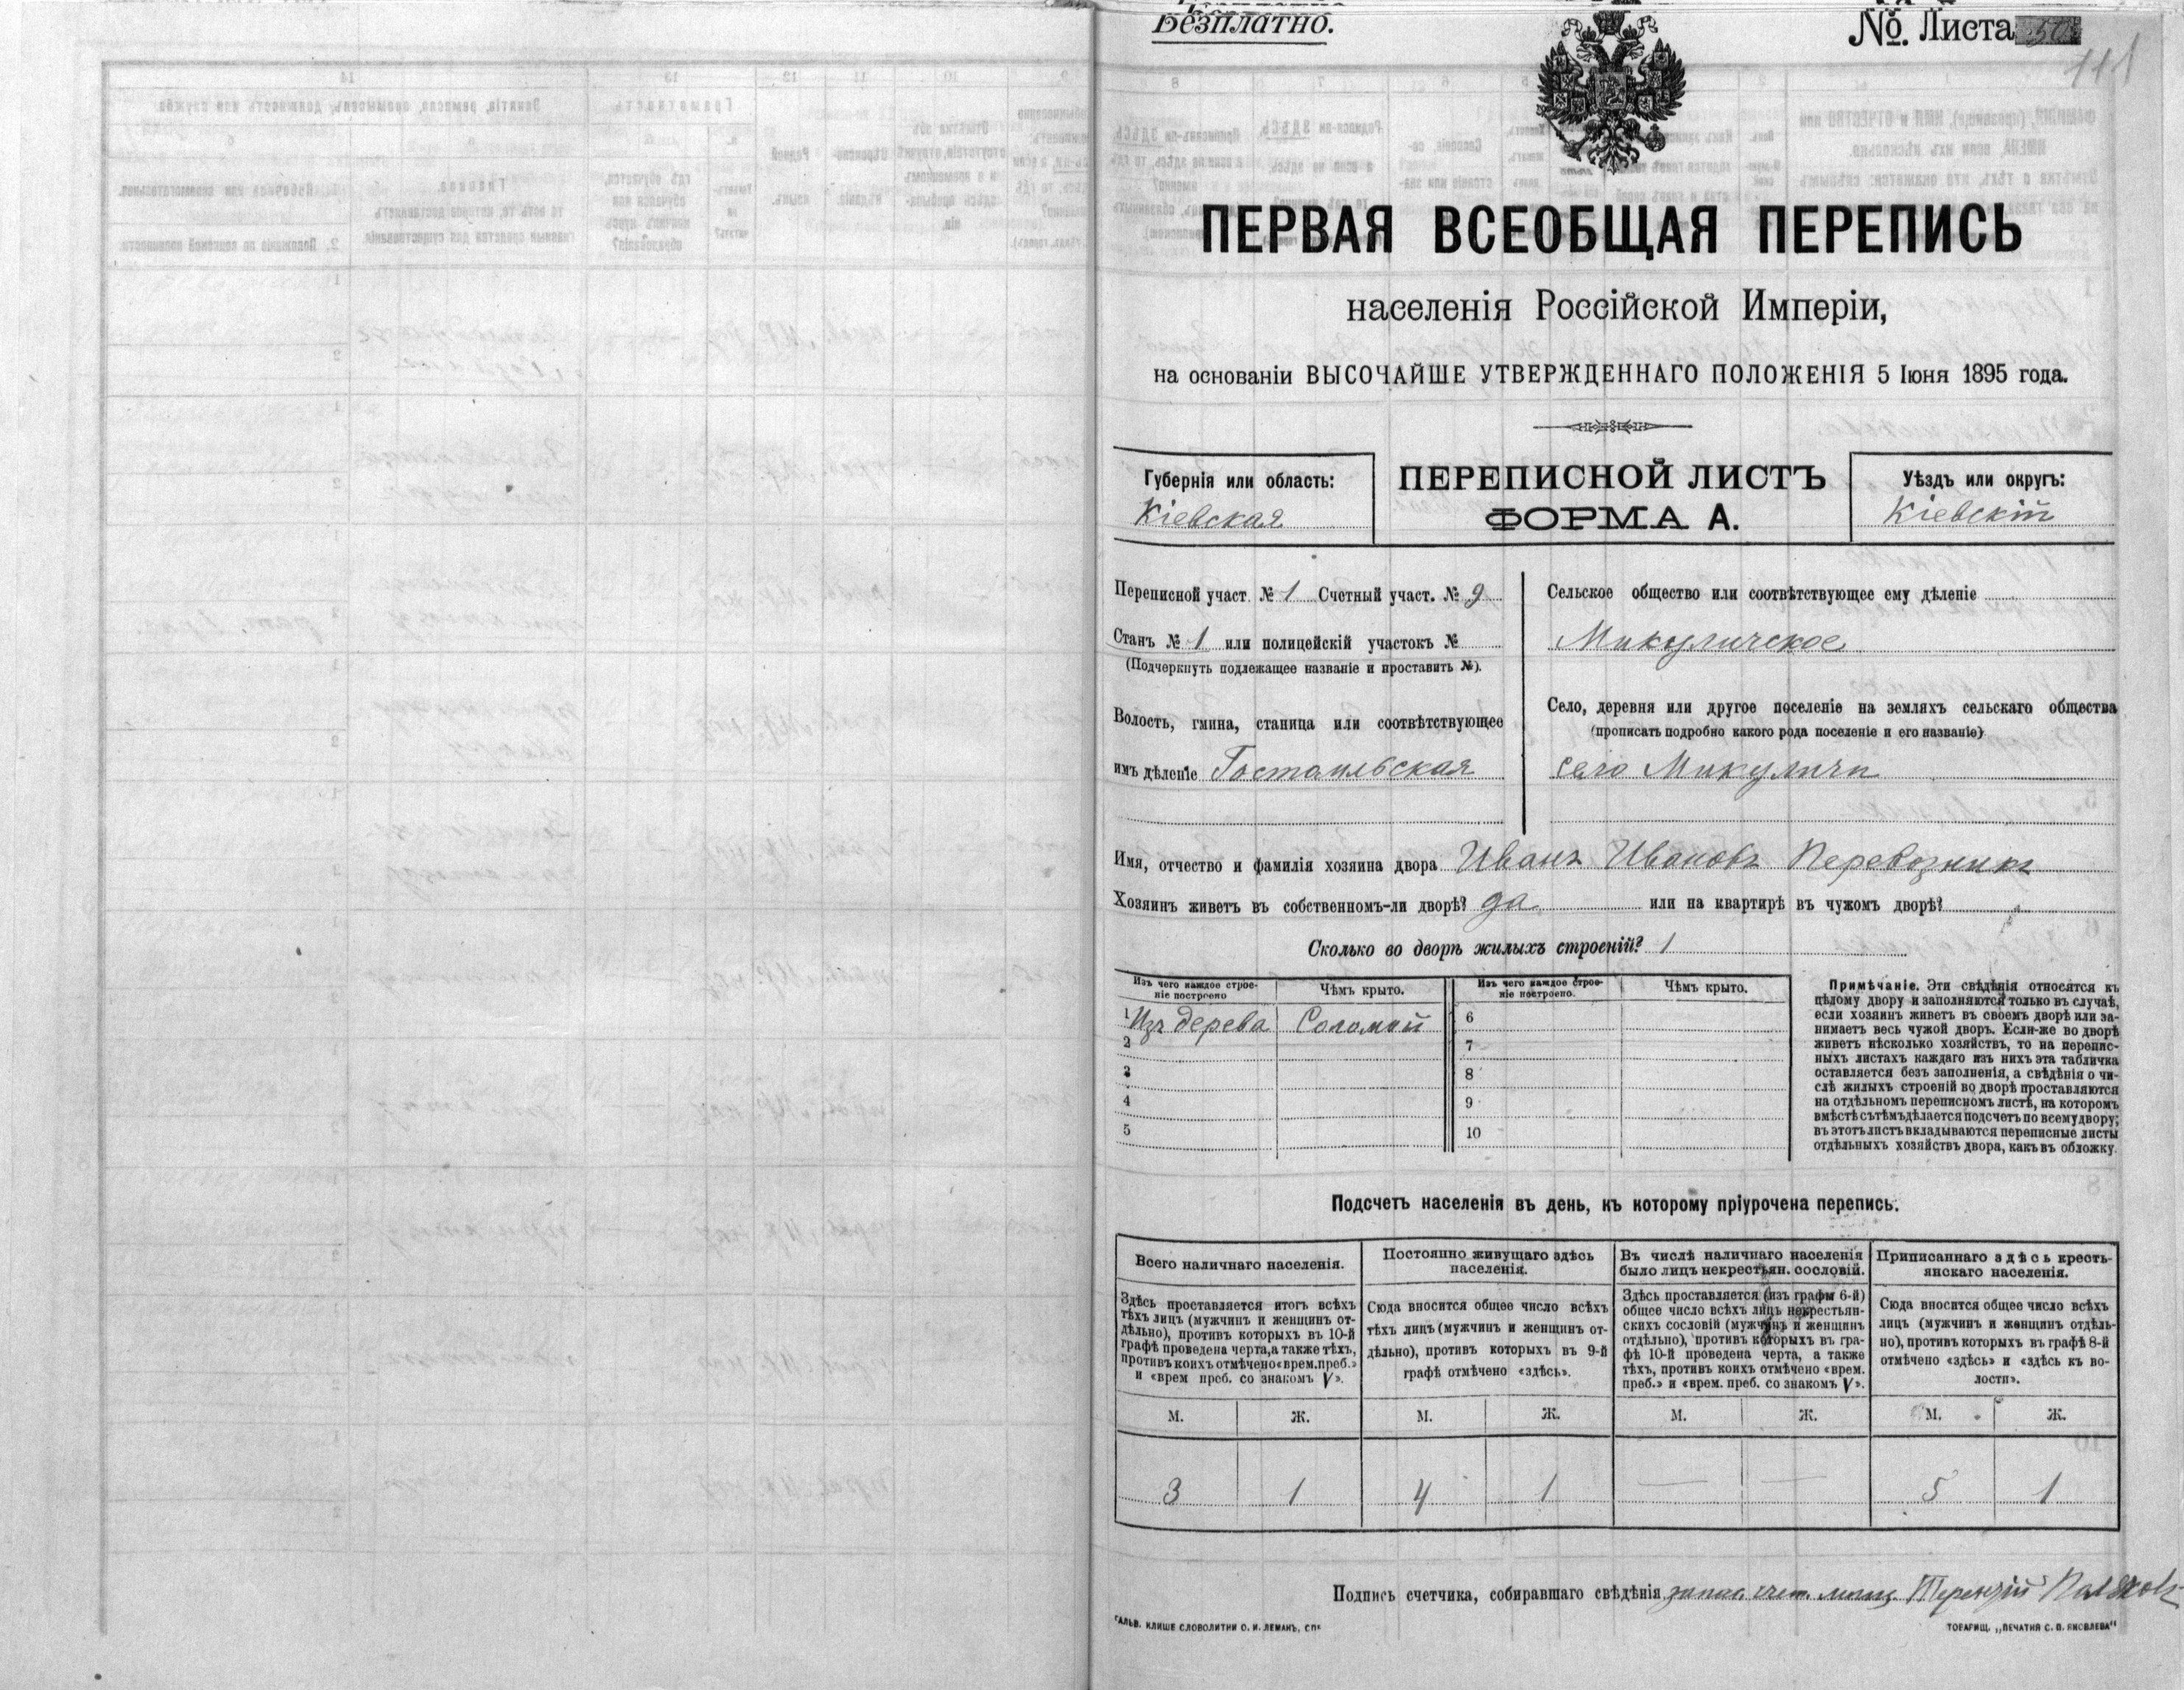 Безплатно.
№. Листа 50
111
ПЕРВАЯ ВСЕОБЩАЯ ПЕРЕПИСЬ
населенія Россійской Имперіи,
на основаніи ВЫСОЧАЙШЕ УТВЕРЖДЕННАГО ПОЛОЖЕНІЯ 5 Іюня 1895 года.
Губернія или область:
Кіевская
ПЕРЕПИСНОЙ ЛИСТЪ
ФОРМА А.
Уѣздъ или округъ:
Кіевскій
Переписной участ. № 1 Счетный участ. № 9
Станъ № 1 или полицейскій участокъ №
(Подчеркнуть подлежащее названіе и проставить №).
Волость, гмина, станица или соотвѣтствующее
имъ дѣленіе Гостомльская
Сельское общество или соотвѣтствующее ему дѣленіе
Микуличское
Село, деревня или другое поселеніе на земляхъ сельскаго общества
(прописать подробно какого рода поселеніе и его названіе)
село Микуличи
Имя, отчество и фамилія хозяина двора Иванъ Ивановъ Перевозникъ
Хозяинъ живетъ въ собственномъ-ли дворѣ? да или на квартирѣ въ чужомъ дворѣ?
Сколько во дворѣ жилыхъ строеній? 1
Изъ чего каждое строе-
ніе построено
Чѣмъ крыто.
Изъ чего каждое строе-
ніе построено.
Чѣмъ крыто.
1 Изъ дерева Соломой
2
3
4
5
6
7
8
9
10
Примѣчаніе. Эти свѣдѣнія относятся къ
цѣлому двору и заполняются только въ случаѣ,
если хозяинъ живетъ въ своемъ дворѣ или за-
нимаетъ весь чужой дворъ. Если-же во дворѣ
живетъ нѣсколько хозяйствъ, то на перепис-
ныхъ листахъ каждаго изъ нихъ эта табличка
оставляется безъ заполненія, а свѣдѣнія о чи-
слѣ жилыхъ строеній во дворѣ проставляются
на отдѣльномъ переписномъ листѣ, на которомъ
вмѣстѣ съ тѣмъ дѣлается подсчетъ по всему двору;
въ этотъ листъ вкладываются переписные листы
отдѣльныхъ хозяйствъ двора, какъ въ обложку.
Подсчетъ населенія въ день, къ которому пріурочена перепись.
Всего наличнаго населенія.
Здѣсь проставляется итогъ всѣхъ
тѣхъ лицъ (мужчинъ и женщинъ от-
дѣльно), противъ которыхъ въ 10-й
графѣ проведена черта, а также тѣхъ,
противъ коихъ отмѣчено «врем. преб.»
и «врем преб. со знакомъ V».
Постоянно живущаго здѣсь
населенія.
Сюда вносится общее число всѣхъ
тѣхъ лицъ (мужчинъ и женщинъ от-
дѣльно), противъ которыхъ въ 9-й
графѣ отмѣчено «здѣсь».
Въ числѣ наличнаго населенія
было лицъ некрестьян. сословій.
Здѣсь проставляется (изъ графы 6-й)
общее число всѣхъ лицъ некрестьян-
скихъ сословій (мужчинъ и женщинъ
отдѣльно), противъ которыхъ въ гра-
фѣ 10-й проведена черта, а также
тѣхъ, противъ коихъ отмѣчено «врем.
преб.» и «врем. преб. со знакомъ V».
Приписаннаго здѣсь кресть-
янскаго населенія.
Сюда вносится общее число всѣхъ
лицъ (мужчинъ и женщинъ отдѣль-
но), противъ которыхъ въ графѣ 8-й
отмѣчено «здѣсь» и «здѣсь къ во-
лости».
М. Ж. М. Ж. М. Ж. М. Ж.
3 1 4 1 — — 5 1
Подпись счетчика, собиравшаго свѣдѣнія запас. счет. Терентій
ГАЛЬВ. КЛИШЕ СЛОВОЛИТНИ О. И. ЛЕМАНЪ, СПБ
ТОВАРИЩ. „ПЕЧАТНЯ С. П. ЯКОВЛЕВА"